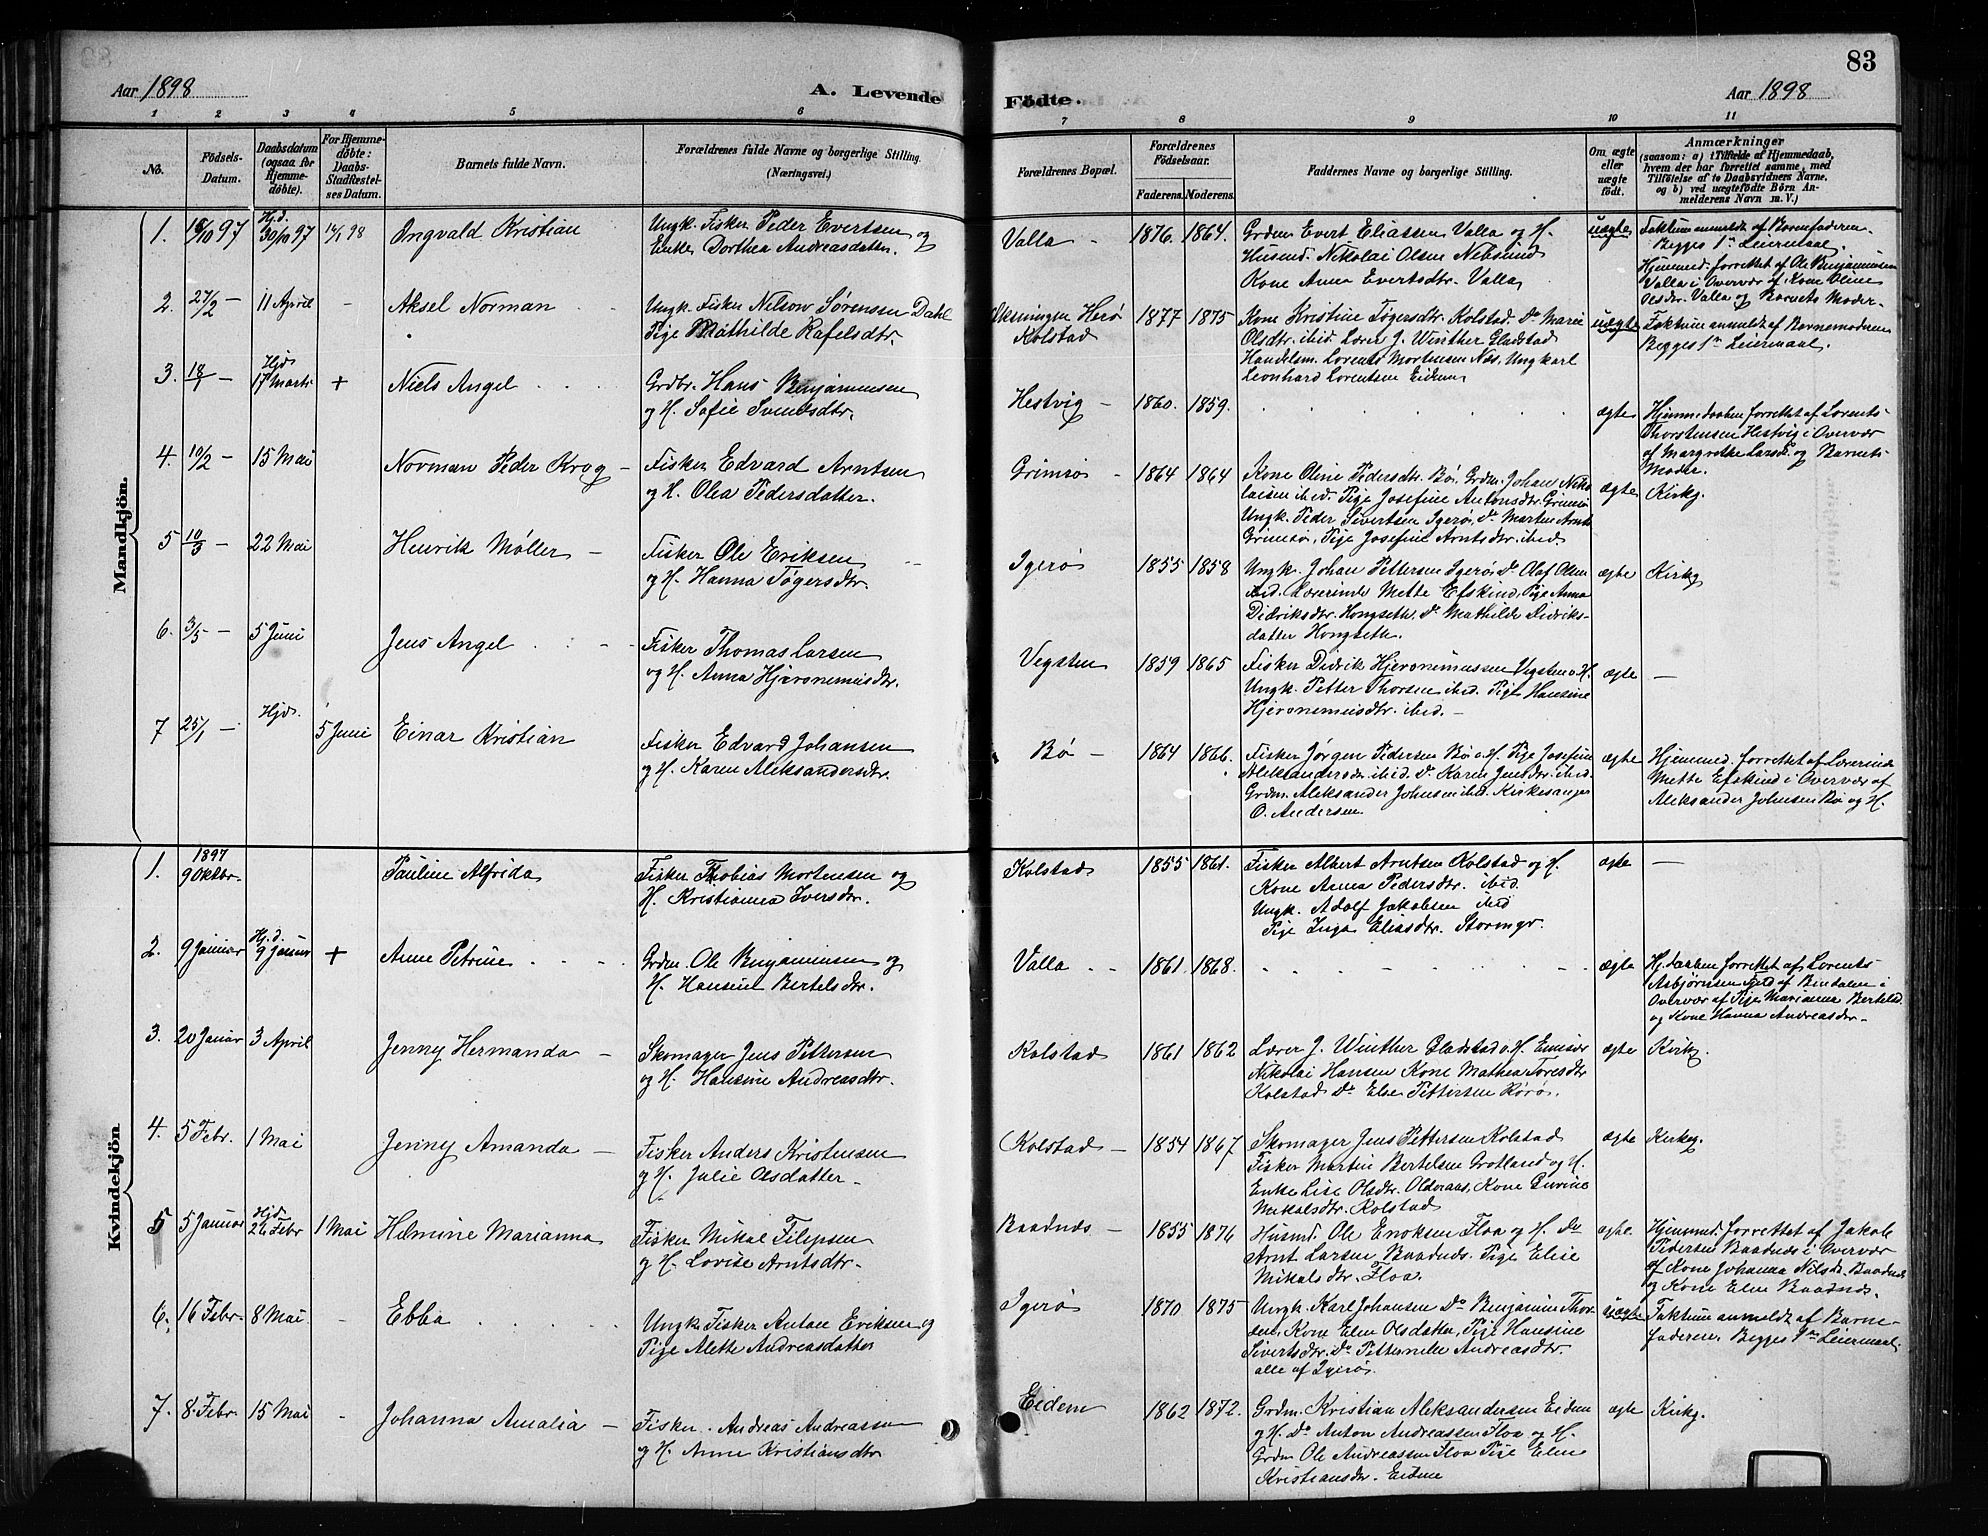 83
Aar 1898
A. Levende
Fødte.
Aar 1898
1 2 3 4 5 6 7 8 9 10 11
No.
Födsels-
Datum.
Daabsdatum
(ogsaa for
Hjemme-
döbte).
For Hjemme-
döbte:
Daabs-
Stadfæstel-
ses Datum.
Barnets fulde Navn.
Forældrenes fulde Navne og borgerlige Stilling.
(Næringsvei.)
Forældrenes Bopæl.
Forældrenes
Födselsaar.
Faderens. Moderens.
Faddernes Navne og borgerlige Stilling.
Om ægte
eller
uægte
födt.
Anmærkninger
(saasom: a) i Tilfælde af Hjemmedaab,
hvem der har forrettet samme, med
Tilföielse af to Daabsvidners Navne,
og b) ved uægtefödte Börn An-
melderens Navn m. V.)
Mandkjön.
1. /10 97 Hjd. 30/10 97 /1 98 Ongvald Kristian
Ungk. Fisker Peder Evertsen og
Enke Dorthea Andreasdatter.
Valla - 1876. 1864.
Grdm Evert Eliassen Valla og H.
Husmd. Nikolai Olsen Nebsund
Kone Anna Evertsdtr. Valla
uægte
Faktum anmeldt af Barnefaderen.
Begges 1ste Leiermaal.
Hjemmed. forrettet af Ole Benjaminsen
Valla i Overvær af Kone Oline
Olsdtr. Valla og Barnets Moder.
2. 27/2 - 11 April - Aksel Norman
Ungk. Fisker Nelson Sørensen Dahl
Pige Mathilde Rafelsdtr.
Herø
Kolstad
1877 1875
Kone Kristine Tøgersdtr. Kolstad. Do Marie
Olsdtr. ibid. Lærer J. Winther Gladstad
Handelsm. Lorents Mortensen Næs, Ungkarl
Leonhard Lorentsen Eidem
uægte
Faktum anmeldt af Barnemoderen
Begges 1ste Leiermaal.
3. 18/1 - Hjd. 17 Marts + Niels Angel
Grdbr. Hans Benjaminsen
og H. Sofie Svendsdtr.
Hestvig - 1860. 1859.
ægte
Hjemmedaaben forrettet af Lorents
Thorstensen Hestvig i Overvær
af Margrethe Larsd. og Barnets
Moder.
4. 10/2 - 15 Mai Norman Peder Krog -
Fisker Edvard Arntsen
og H. Olea Pedersdatter.
Grimsø - 1864 1864
Kone Oline Pedersdtr. Bø, Grdm. Johan Niko
laisen ibid, Pige Josefine Antonsdtr. Grimsø
Ungk. Peder Sivertsen Igerø, Do Martin Arnts
Grimsø, Pige Josefine Arntsdtr. ibid.
ægte Kirkg.
5 10/3 - 22 Mai Henrik Møller -
Fisker Ole Eriksen
og H. Hanna Tøgersdtr.
Igerø 1855 1858
Ungk. Johan Pettersen Igerø, Do Olaf Olsen
ibid. Lærerinde Mette Efskind, Pige Anna
Didriksdtr. Hongseth. Do Mathilde Didriks-
datter Hongseth.
ægte Kirkg
6. 3/5 - 5 Juni Jens Angel
Fisker Thomas Larsen
og H. Anna Hjeronemusdtr.
Vegsten 1859 1865
Fisker Didrik Hjeronimussen Vegsten o. H.
Ungk. Petter Thorsen ibid. Pige Hansine
Hjeronemusdtr. ibid. -
ægte -
7 25/1 - Hjd. 5 Juni Einar Kristian
Fisker Edvard Johansen
og H. Karen Aleksandersdtr.
Bø - 1864 1866.
Fisker Jørgen Pedersen Bø o. H. Pige Josefine
Aleksandersdtr. ibid. Do Karen Jensdtr. ibid.
Grdm. Aleksander Johnsen ibid. Kirkesanger
O. Andersen.
ægte
Hjemmed. forrettet af Lærerinde
Mette Efskind i Overvær af
Aleksander Johnsen Bø og H.
Kvindekjön
1. 1897 9 Oktbr. Pauline Alfrida
Fisker Thobias Mortensen og
H. Kristianna Iversdtr.
Kolstad 1855 1861.
Fisker Albert Arntsen Kolstad og H.
Kone Anna Pedersdtr. ibid.
Ungk. Adolf Jakobsen ibid
Pige Inga Eliasdtr. Stormgr.
ægte -
2. 9 Januar Hj.d. 9 Januar + Anne Petrine
Grdm. Ole Benjaminsen og
H. Hansine Bertelsdtr.
Valla 1861. 1868.
ægte
Hj. daaben forrettet af Lorents
Asbjørnsen Fjeld af Bindalen i
Overvær af Pige Marianna Bertelsd.
og Kone Hanna Andreasdtr.
3. 20 Januar 3 April Jenny Hermanda -
Skomager Jens Pettersen
og H. Hansine Andreasdtr.
Kolstad 1861 1862
Lærer J. Winther Gladstad o. H.
Nikolai Hansen Kone Mathea Toresdtr
Kolstad Do Else Pettersen Rørø.
ægte Kirkg.
4. 5 Febr. 1 Mai Jenny Amanda -
Fisker Anders Kristensen
og H. Julie Olsdatter -
Kolstad - 1854 1867
Skomager Jens Pettersen Kolstad
Fisker Martin Bertelsen Grotland og H.
Enke Lise Olsdtr. , Kone Gurine
Mikalsdtr. Kolstad
ægte Kirkeg.
5 5 Januar Hjd. 26 Febr 1 Mai Helmine Marianna
Fisker Mikal Filipsen
og H. Lovise Arntsdtr.
Baadnæs - 1855 1876
Husmd. Ole Enoksen Floa og H. Do
Arnt Larsen Baadnæs. Pige Elise
Mikalsdtr. Floa.
ægte
Hjemmed. forrettet af Jakob
Pedersen Baadnæs i Overvær
af Kone Johanna Nilsdr. Baadnæs
og Kone Elen Baadnæs.
6. 16 Febr. 8 Mai - Ebba
Ungk. Fisker Anton Eriksen og
Pige Alette Andreasdatter
Igerø 1870 1875
Ungk. Karl Johansen Do Benjamin Thor
, Kone Elen Olsdatter, Pige Hansine
Sivertsdtr. Do Petternelle Andreasdtr.
alle af Igerø.
uægte
Faktum anmeldt af Barne-
faderen. Begges 1ste Leiermaal.
7. 8 Febr. 15 Mai - Johanna Amalia -
Fisker Andreas Andreassen
og H. Anne Kristiansdtr
Eidem 1862 1872.
Grdm. Kristian Aleksandersen Eidem
og H. Do Anton Andreassen Floa og H.
Grdm Ole Andreassen Floa Pige Elen
Kristiansdtr. Eidem
ægte Kirkg.